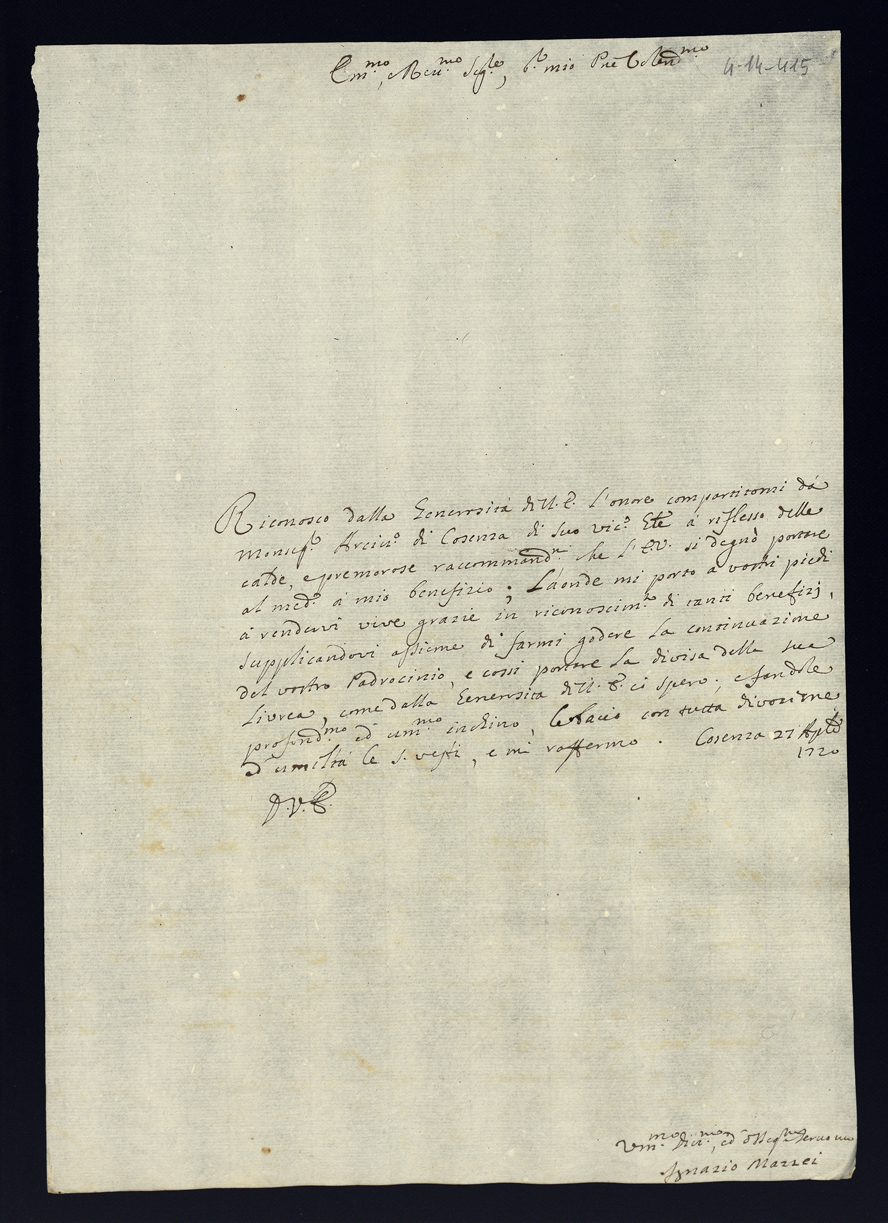 Em.mo, e Reu.mo Sig.re, S.r mio Pne Colend.mo
4-14-415
Riconosco dalla Generosità di V. E. l'onore compartitomi dà
Monsig.r Arciu.o di Cosenza di suo vic.o Gnle à riflesso delle
calde, e premorose raccommand.ni che l'E.V. si degnò portare
al med.o à mio benefizio; Laonde mi porto a vostri piedi
à rendervi vive grazie in riconoscim.to di tanti benefizj,
supplicandovi assieme di farmi godere la continuazione
del vostro Padrocinio, e cossi portare la divisa della sua
Livrea, come dalla Generosità di V. E. ci spero; e fandole
profond.mo ed um.mo inchino, le bacio con tutta divozione
ed umiltà le s. vesti, e mi raffermo. Cosenza 27 Aple
1720
D. V. E.
Vm.mo Diu.mo, ed Osseq.mo Seruo
Ignazio Mazzei